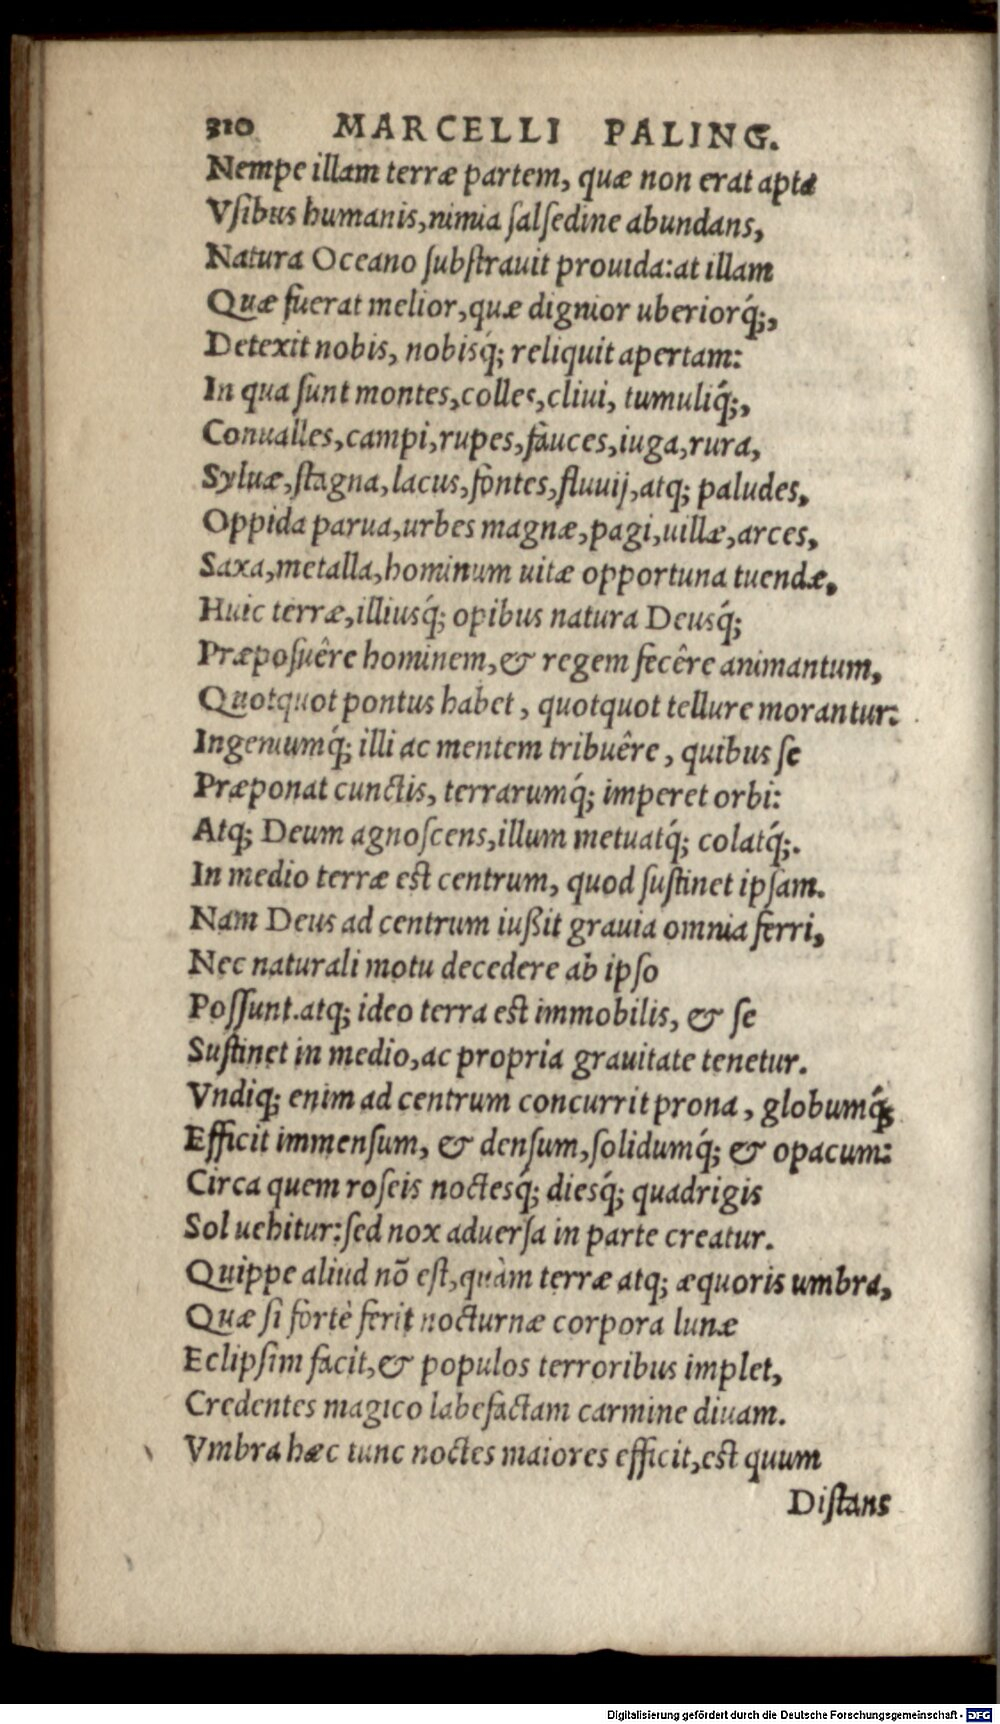 310 MARCELLI PALING.
Nempe illam terræ partem, quæ non erat apta
Vſibus humanis, nimia ſalſedine abundans,
Natura Oceano ſubſtrauit prouida: at illam
Quæ fuerat melior, quæ dignior uberiorq́;,
Detexit nobis, nobisq́; reliquit apertam:
In qua ſunt montes, colles, cliui, tumuliq́;,
Conualles, campi, rupes, fauces, iuga, rura,
Syluæ, ſtagna, lacus, fontes, fluuij, atq; paludes,
Oppida parua, urbes magnæ, pagi, uillæ, arces,
Saxa, metalla, hominum uitæ opportuna tuendæ,
Huic terræ, illiusq́; opibus natura Deusq́;
Præpoſuêre hominem, & regem fecêre animantum,
Quotquot pontus habet, quotquot tellure morantur:
Ingeniumq́; illi ac mentem tribuêre, quibus ſe
Præponat cunctis, terrarumq́; imperet orbi:
Atq; Deum agnoſcens, illum metuatq́; colatq́;.
In medio terræ eſt centrum, quod ſuſtinet ipſam.
Nam Deus ad centrum iußit grauia omnia ferri,
Nec naturali motu decedere ab ipſo
Poſſunt. atq; ideo terra eſt immobilis, & ſe
Suſtinet in medio, ac propria grauitate tenetur.
Vndiq; enim ad centrum concurrit prona, globumq́;
Efficit immenſum, & denſum, ſolidumq́; & opacum:
Circa quem roſeis noctesq́; diesq́; quadrigis
Sol uehitur: ſed nox aduerſa in parte creatur.
Quippe aliud nõ eſt, quàm terræ atq; æquoris umbra,
Quæ ſi fortè ferit nocturnæ corpora lunæ
Eclipſim facit, & populos terroribus implet,
Credentes magico labefactam carmine diuam.
Vmbra hæc tunc noctes maiores efficit, eſt quum
Diſtans
Digitalisierung gefördert durch die Deutsche Forschungsgemeinschaft - DFG